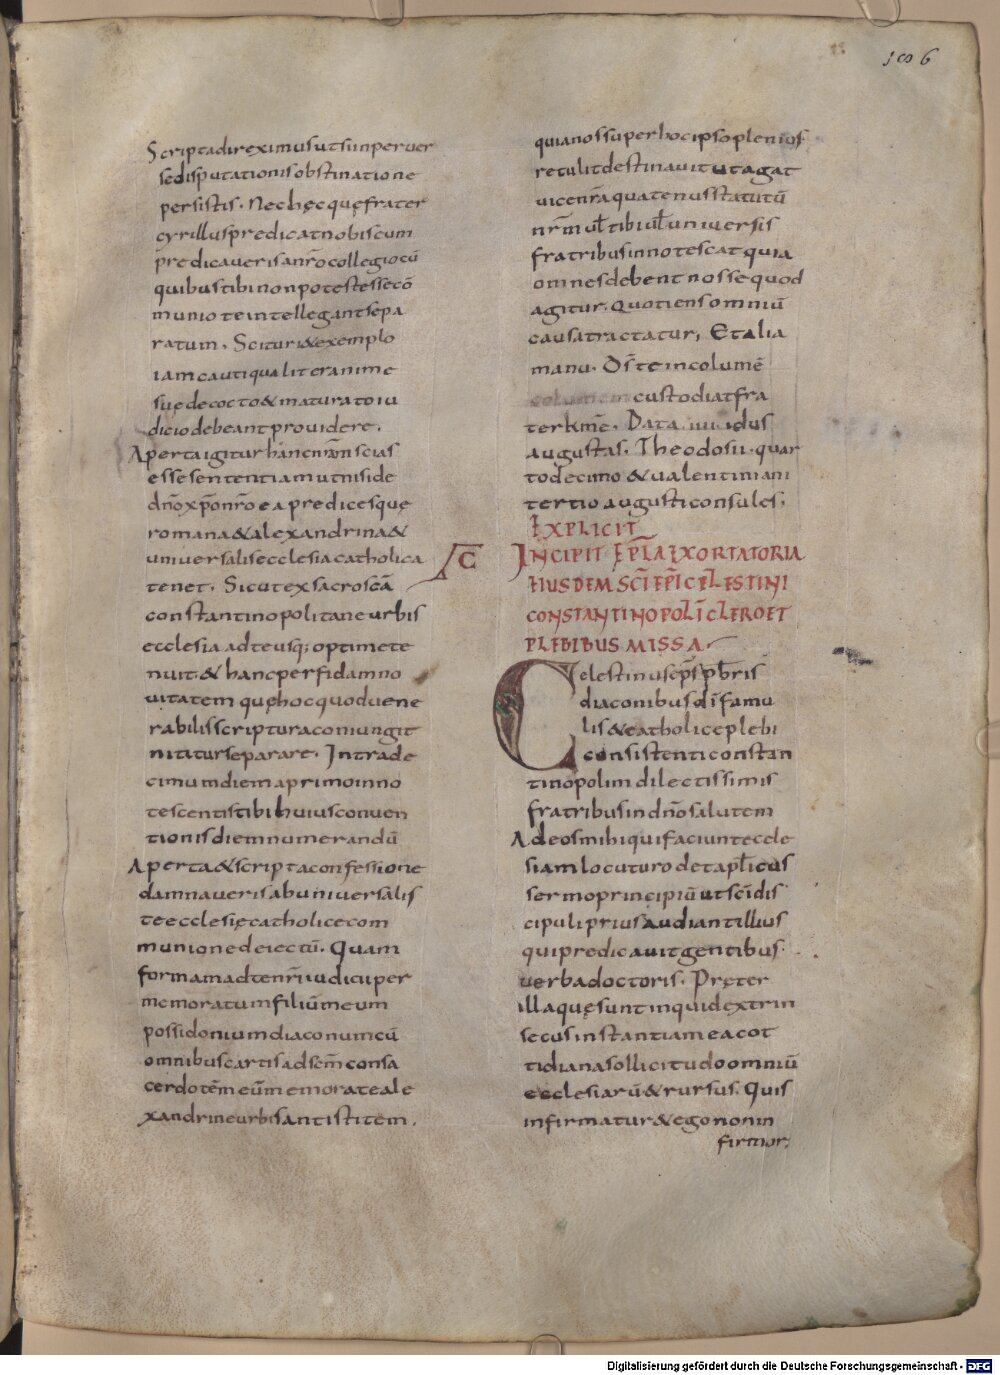 106
Scripta direximus ut si in perver
se disputationis obstinatione
persistis. Nec hęc quę frater
cyrillus predicat nobiscum
predicaveris a nr̄o collegio cū
quibus tibi non potest esse cō
munio te intellegant sepa
ratum. Scitur & exemplo
iam cauti qualiter anime
suę decocto & maturato iu
dicio debeant providere.
Aperta igitur hanc nr̄am scias
esse sententiam ut nisi de
dn̄o xp̄o nr̄o ea predices quę
romana & alexandrina &
universalis ecclesia catholica
tenet. Sicut ex sacrosc̄a
constantinopolitane urbis
ecclesia ad te usq; optime te
nuit. & hanc perfidam no
vitatem quę hoc quod vene
rabilis scriptura coniungit
nititur separare. Intra de
cimum diem a primo inno
tescentis tibi huius conven
tionis diem numerandū
Aperta & scripta confessione
damnaveris ab universalis
te ecclesię catholice com
munione deiectū. Quam
formam ad te nr̄i iudicii per
memoratum filiū meum
possidonium diaconum cū
omnibus cartis ad sc̄m consa
cerdotēm eūmemorate ale
xandrine urbis antistitem.
quia nos super hoc ipso plenius
retulit destinavit ut agat
vice nr̄a quatenus statutū
nr̄m vel̄ tibi vel̄ universis
fratribus innotescat quia
omnes debent nosse quod
agitur. Quotiens omniū
causa tractatur; Et alia
manu. Dŝ te incolumē
columem custodiat fra
ter kmē. Data iiii idus
augustas. Theodosii quar
todecimo & valentiniani
tertio augusti consules.
EXPLICIT
INCIPIT EPL̄A EXORTATORIA
EIUSDEM SC̄I EPĪ CELESTINI
CONSTANTINOPOLĪ CLERO ET
PLEBI BUS MISSA
Celestinus ep̄s pb̄ris
diaconibus dī famu
lis & catholice plebi
consistenti constan
tinopolim dilectissimis
fratribus in dn̄o salutem
Ad eos mihi qui faciunt eccle
siam locuturo det apl̄icus
sermo principiū ut sc̄i dis
cipuli prius audiant illius
qui predicavit gentibus
verba doctoris. Pręter
illa quę sunt inquid extrin
secus instantia mea cot
tidiana sollicitudo omniū
ecclesiarū & rursus. Quis
infirmatur & ego non in
firmor;
Digitalisierung gefördert durch die Deutsche Forschungsgemeinschaft - DFG